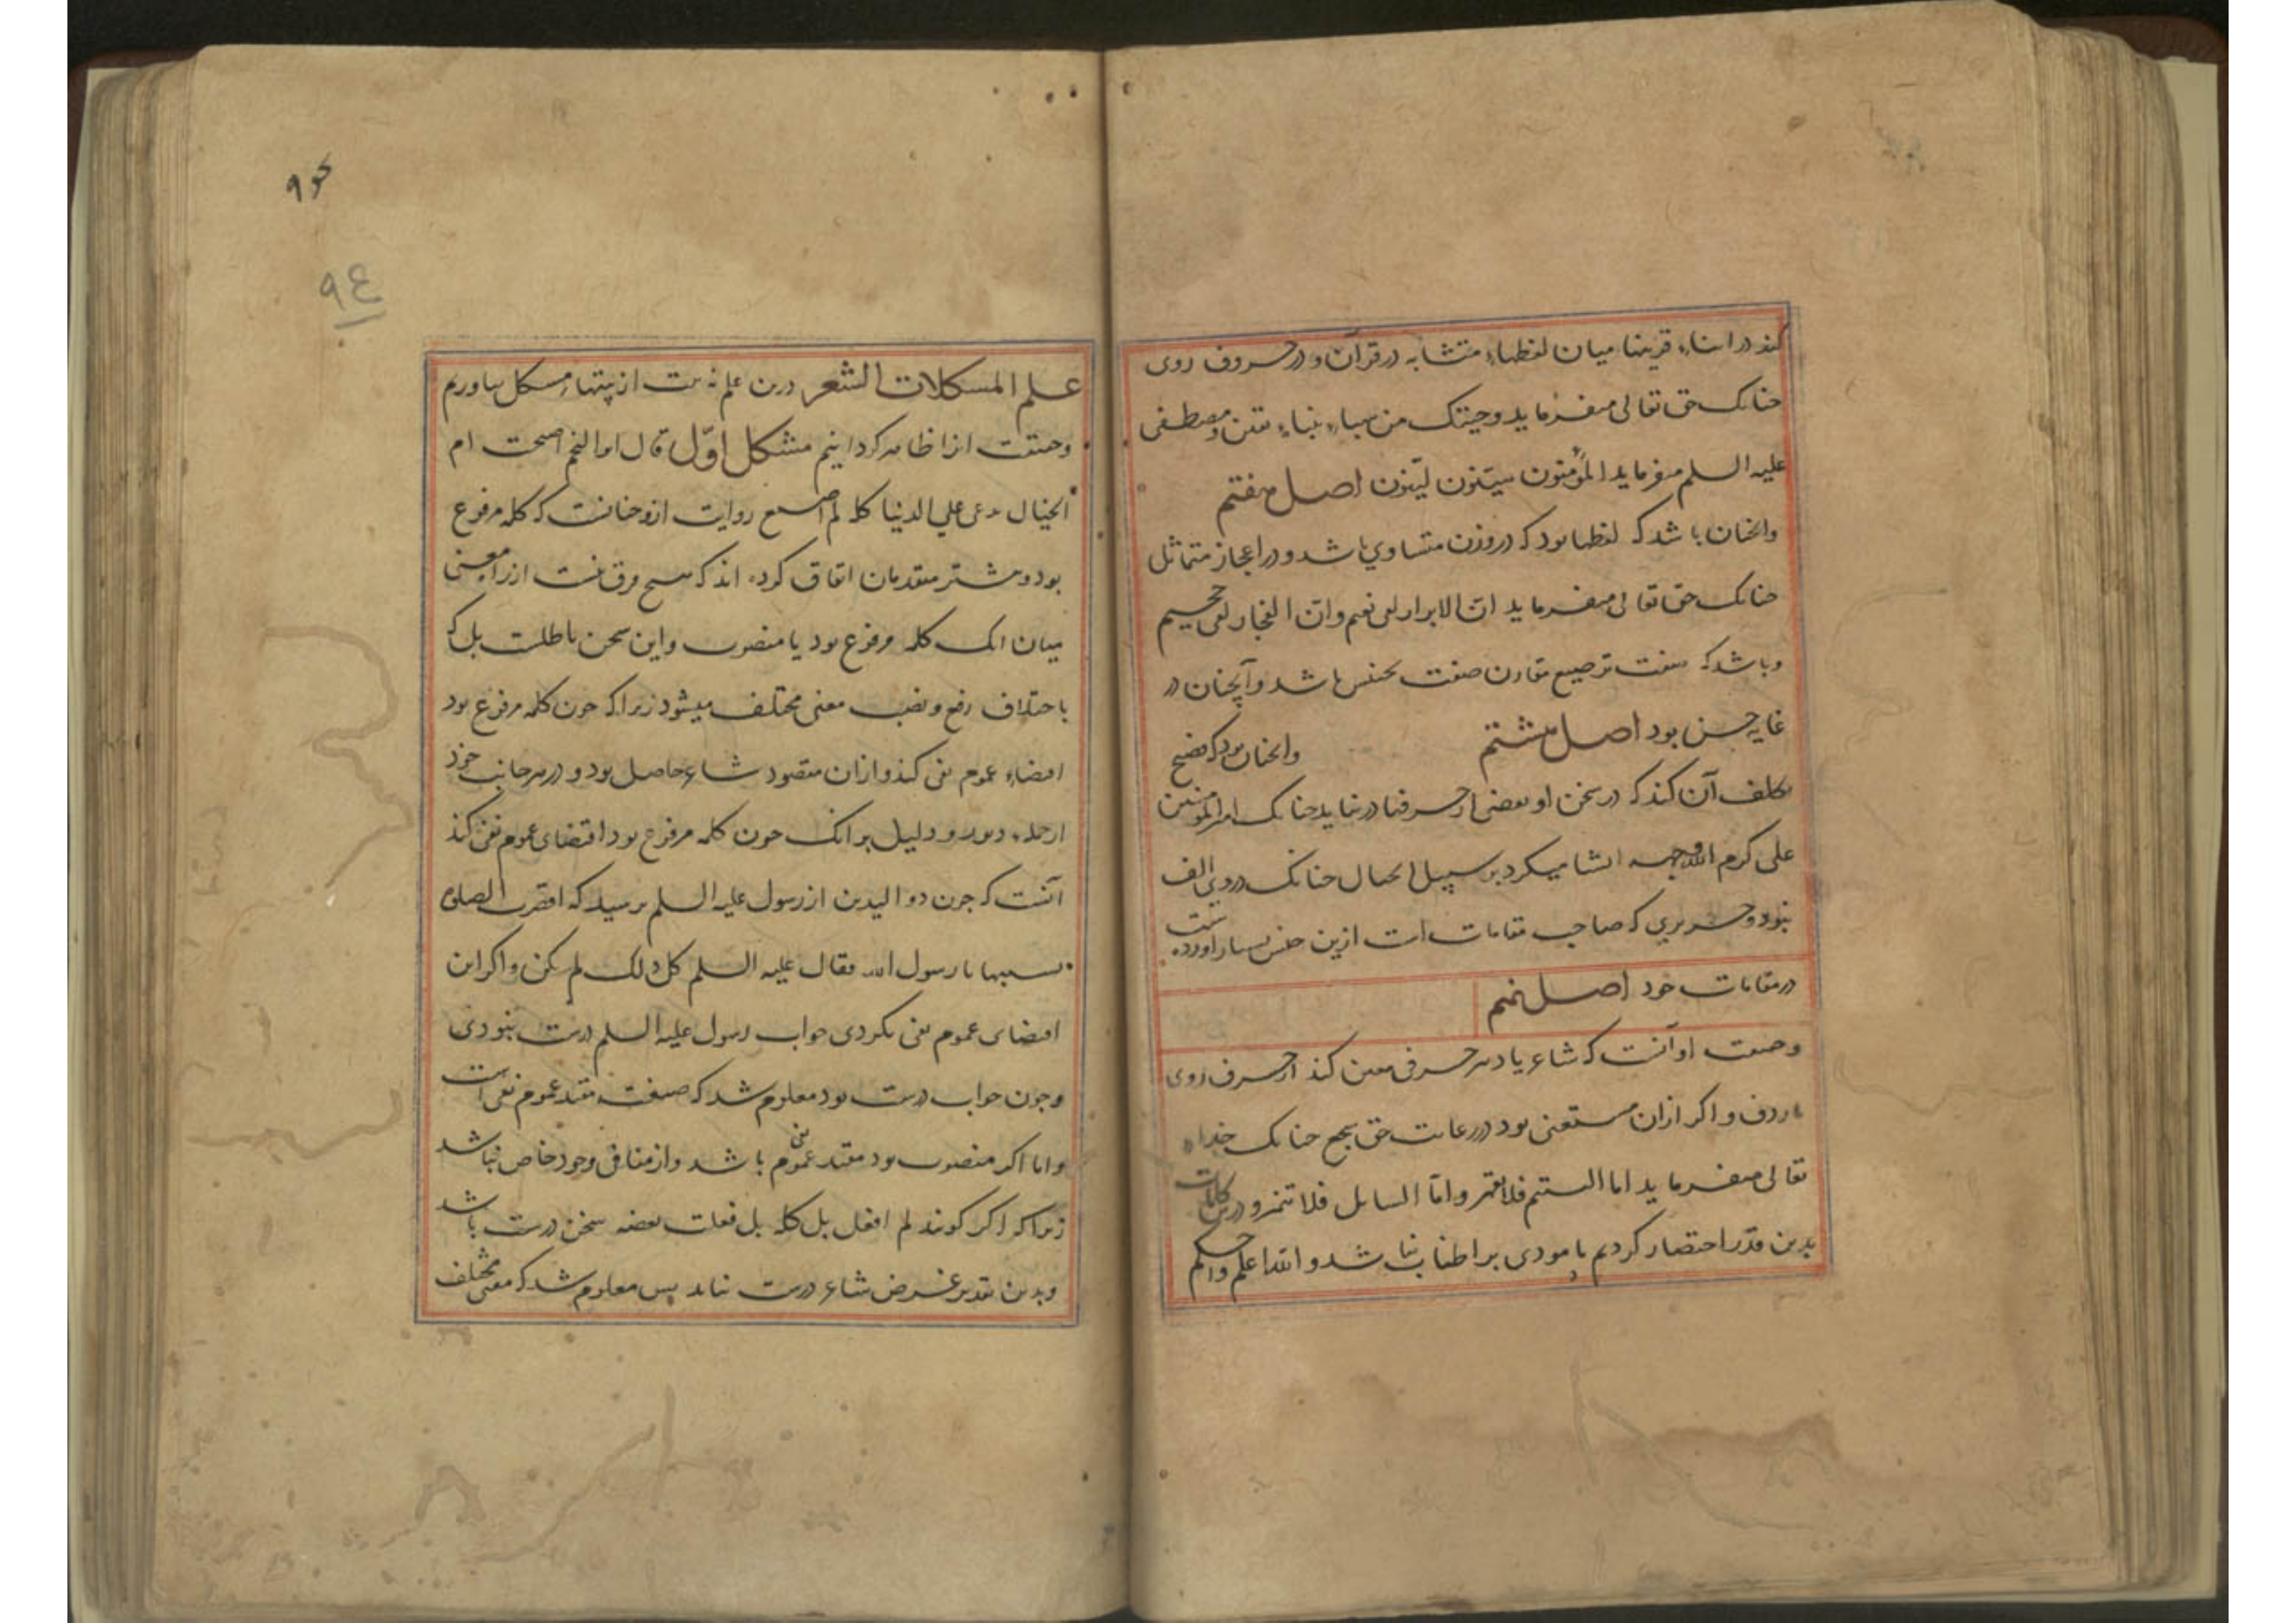 کند در اثناء قرینها میان لفظهاء متشابه در قرآن و در حروف روی
جنانک حق تعالی میفرماید وجیتک من سباء بنباء یقین و مصطفی
علیه السلم میفرماید المؤمنون هینون لینون اصل هفتم
وانجنان باشد که لفظها بود که در وزن متساوی باشد و در اعجاز متماثل
جنانک حق تعالی میفرماید ان الابرار لفی نعیم وان الفجار لفی جحیم
وباشد که صفت ترصیع مقارن صنعت تجنیس باشد وآنچنان در
غایه حسن بود اصل هشتم وانجنان بود که فصیح
تکلف آن کند که در سخن او بعضی از حرفها در نیاید جنانک امیر المؤمنین
علی کرم الله وجهه انشا میکرد بر سبیل ارتجال جنانک در وی الف
نبود و حریری که صاحب مقامات است ازین جنس بسیار آورده است
در مقامات خود اصل نهم
وصنعت او آنست که شاعر یا دبیر حرفی معین کند از حرف روی
یا ردف و اکر ازان مستغنی بود در رعایت حق سجع جنانک خداء
تعالی میفرماید اما الیتیم فلا تقهر واما السایل فلا تنهر و درین کلمات
بدین قدر اختصار کردیم تا مودی بر اطناب نباشد والله اعلم واحکم
نحو ۹
۹٤
علم المسکلات الشعر درین علم نه بیت از بیتهاء مشکل بیاوریم
وحقیقت انرا ظاهر کردانیم مشکل اول قال ابو النجم اصبحت ام
الخیال تدعی علی الدنیا کله لم اصنع روایت ازو جنانست که کله مرفوع
بود و بیشتر متقدمان اتفاق کرده اند که هیچ فرق نیست از راه معنی
میان انک کله مرفوع بود یا منصوب واین سخن باطلست بل که
باختلاف رفع و نصب معنی مختلف میشود زیرا که جون کله مرفوع بود
اقتضاء عموم نفی کند و ازان مقصود شاعر حاصل بود و در هر جانب خود
از جمله دور و دلیل بر انک جون کله مرفوع بود اقتضای عموم نفی کند
آنست که جون ذو الیدین از رسول علیه السلم برسید که اقصرت الصلوة
ام نسیتها یا رسول الله فقال علیه السلم کل ذلک لم یکن و اکر این
اقتضای عموم نفی نکردی جواب رسول علیه السلم درست نبودی
وجون جواب درست بود معلوم شد که صیغت مفید عموم نفی است
واما اکر منصوب بود مفید نفی عموم باشد و از منافی وجود خاص نباشد
زیرا که اکر کویند لم افعل کله بل فعلت بعضه سخن درست باشد
وبدین تقدیر غرض شاعر درست نیاید پس معلوم شد که معنی مختلف